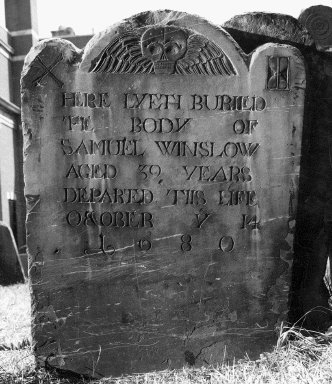 HERE LYETH BURIED
THE BODY OF
SAMUEL WINSLOW
AGED 39 YEARS
DEPARED THIS LIFE
OCTOBER Y 14
1680